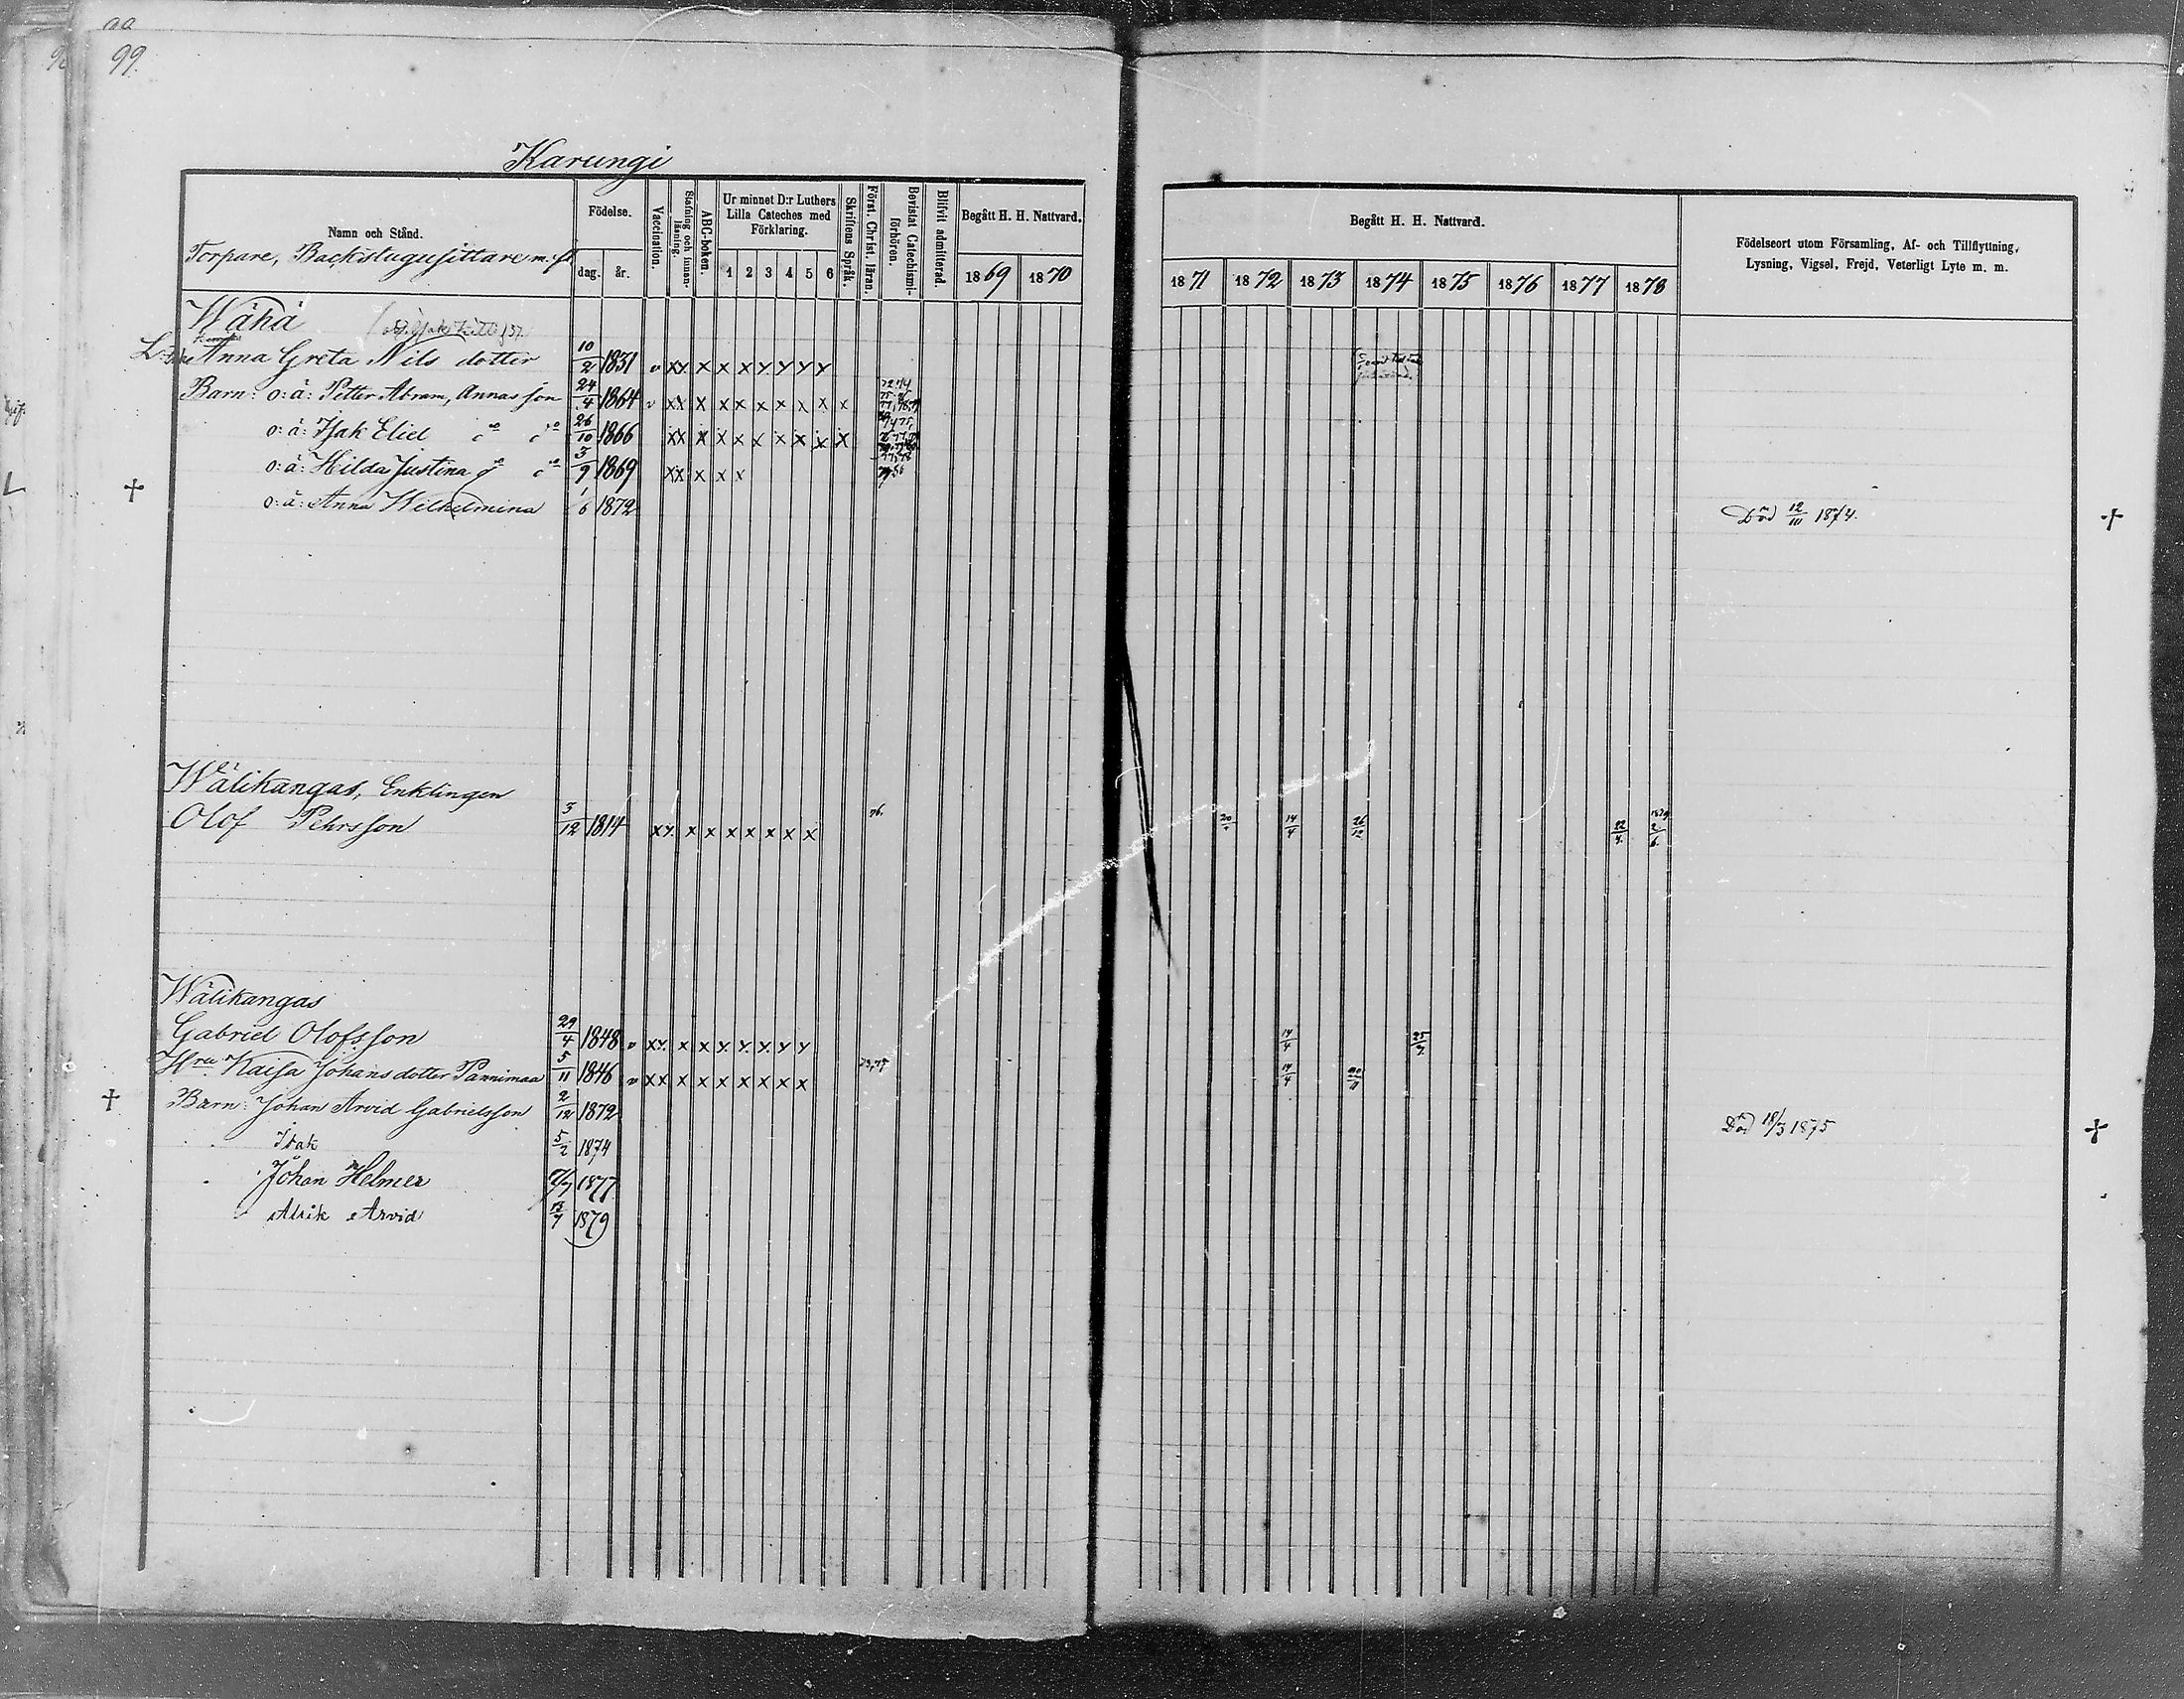 99.
Karungi
Namn och Stånd.
Torpare, Backstugusittare m. fl.
Födelse.
dag. år.
Vaccination.
Stafning och innan-läsning.
ABC-boken.
Ur minnet D:r Luthers Lilla Cateches med Förklaring.
1 2 3 4 5 6
Skriftens Språk.
Först. Christ. läran.
Bevistat Catechismi-förhören.
Blifvit admitterad.
Begått H. H. Nattvard.
1869 1870
Begått H. H. Nattvard.
1871 1872 1873 1874 1875 1876 1877 1878
Födelseort utom Församling, Af- och Tillflyttning, Lysning, Vigsel, Frejd, Veterligt Lyte m. m.
Wähä
Anna Greta Nils dotter 10/2 1831 v xx x x x y y y y
Barn: o: ä: Petter Abram, Annas son 24/4 1864 v xx x x x x x x x x
o: ä: Isak Eliel do do 26/10 1866 xx x x x x x x x x
o: ä: Hilda Justina do do 3/9 1869 xx x x x
† o: ä: Anna Wilhelmina 1/6 1872 Död 12/III 1874. †
Wälikangas, Enklingen
Olof Pehrsson 3/12 1814 xx x x x x x x x 76. 14/4 26/12 22/4 1879 2/6
Wälikangas
Gabriel Olofsson 29/4 1848 v xx x x y y y y y 14/4 25/7
Hru Kaisa Johans dotter Pannimaa 5/11 1846 v xx x x x x x x x 14/4
† Barn: Johan Arvid Gabrielsson 2/12 1872 Död 18/3 1875 †
Isak 5/2 1874
Johan Helmer 1877
Alrik Arvid 1879